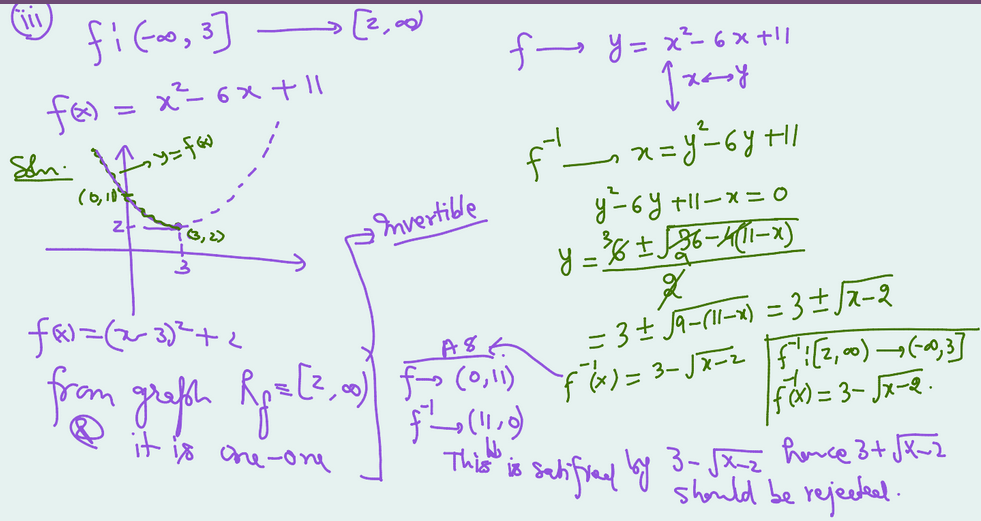 (iii) f: (-∞, 3] ⟶ [2, ∞)
f(x) = x² - 6x + 11
Soln.
y = f(x)
(0,11)
2
(3,2)
3
f(x) = (x-3)² + 2
from graph R_f = [2, ∞)
& it is one-one
Invertible
f ⟶ y = x² - 6x + 11
x ↔ y
f⁻¹ ⟶ x = y² - 6y + 11
y² - 6y + 11 - x = 0
y = (6 ± √(36 - 4(11-x)))/2
= 3 ± √(9-(11-x)) = 3 ± √(x-2)
f⁻¹(x) = 3 - √(x-2)
f⁻¹: [2, ∞) → (-∞, 3]
f⁻¹(x) = 3 - √(x-2).
AS
f → (0,11)
f⁻¹ → (11,0)
This is satisfied by 3 - √(x-2) hence 3 + √(x-2)
should be rejected.